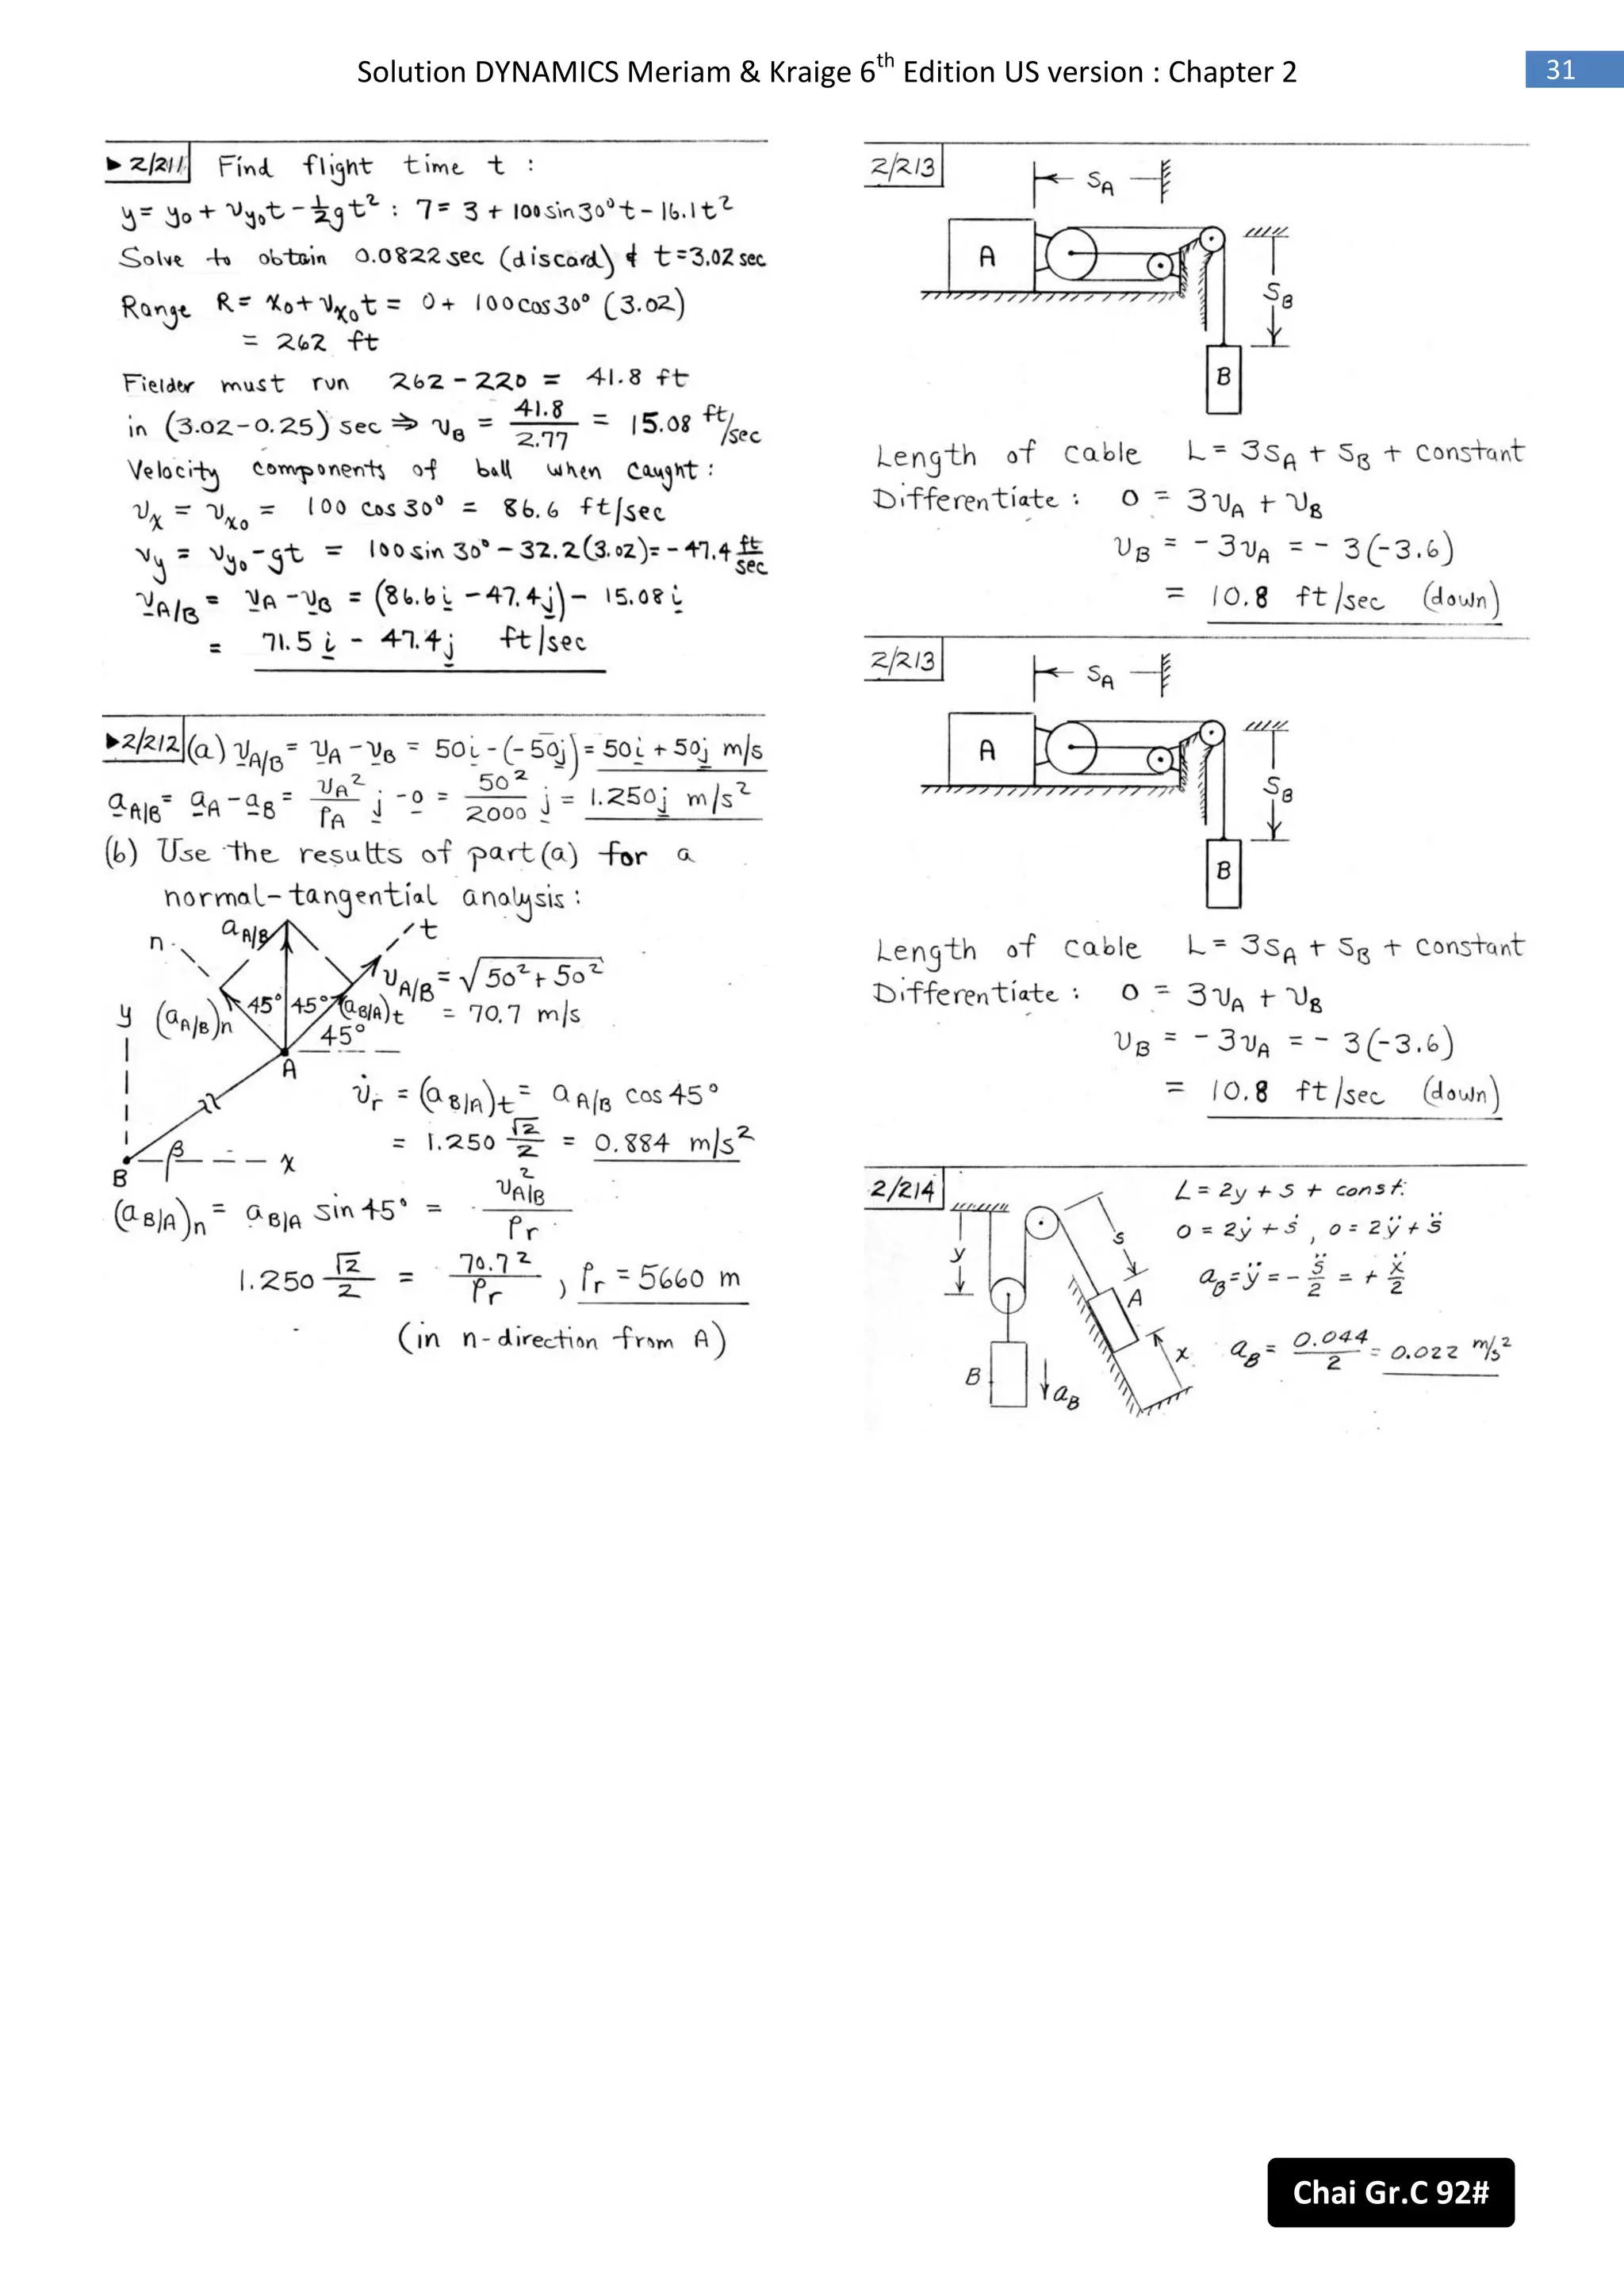 Solution DYNAMICS Meriam & Kraige 6th Edition US version : Chapter 2
31
▶2/211 Find flight time t :
y = y₀ + v_y₀t - ½gt² : 7 = 3 + 100 sin 30° t - 16.1t²
Solve to obtain 0.0822 sec (discard) & t = 3.02 sec
Range R = x₀ + v_x₀t = 0 + 100 cos 30° (3.02)
= 262 ft
Fielder must run 262 - 220 = 41.8 ft
in (3.02 - 0.25) sec ⇒ v_B = 41.8/2.77 = 15.08 ft/sec
Velocity components of ball when caught :
v_x = v_x₀ = 100 cos 30° = 86.6 ft/sec
v_y = v_y₀ - gt = 100 sin 30° - 32.2(3.02) = -47.4 ft/sec
v_A/B = v_A - v_B = (86.6i - 47.4j) - 15.08i
= 71.5i - 47.4j ft/sec
▶2/212 (a) v_A/B = v_A - v_B = 50i - (-50j) = 50i + 50j m/s
a_A/B = a_A - a_B = v_A²/ρ_A j - 0 = 50²/2000 j = 1.250j m/s²
(b) Use the results of part (a) for a
normal-tangential analysis :
n
a_A/B
t
v_A/B = √(50² + 50²)
= 70.7 m/s
y
(a_A/B)n
45° 45°
(a_B/A)t
45°
A
r
B
β
x
v̇_r = (a_B/A)t = a_A/B cos 45°
= 1.250 √2/2 = 0.884 m/s²
(a_B/A)n = a_B/A sin 45° = v_A/B²/ρ_r
1.250 √2/2 = 70.7²/ρ_r , ρ_r = 5660 m
(in n-direction from A)
2/213
S_A
A
S_B
B
Length of cable L = 3S_A + S_B + constant
Differentiate : 0 = 3v_A + v_B
v_B = -3v_A = -3(-3.6)
= 10.8 ft/sec (down)
2/213
S_A
A
S_B
B
Length of cable L = 3S_A + S_B + constant
Differentiate : 0 = 3v_A + v_B
v_B = -3v_A = -3(-3.6)
= 10.8 ft/sec (down)
2/214
L = 2y + s + const.
0 = 2ẏ + ṡ , 0 = 2ÿ + s̈
a_B = ÿ = - s̈/2 = + ẍ/2
a_B = 0.044/2 = 0.022 m/s²
y
s
A
x
B
a_B
Chai Gr.C 92#